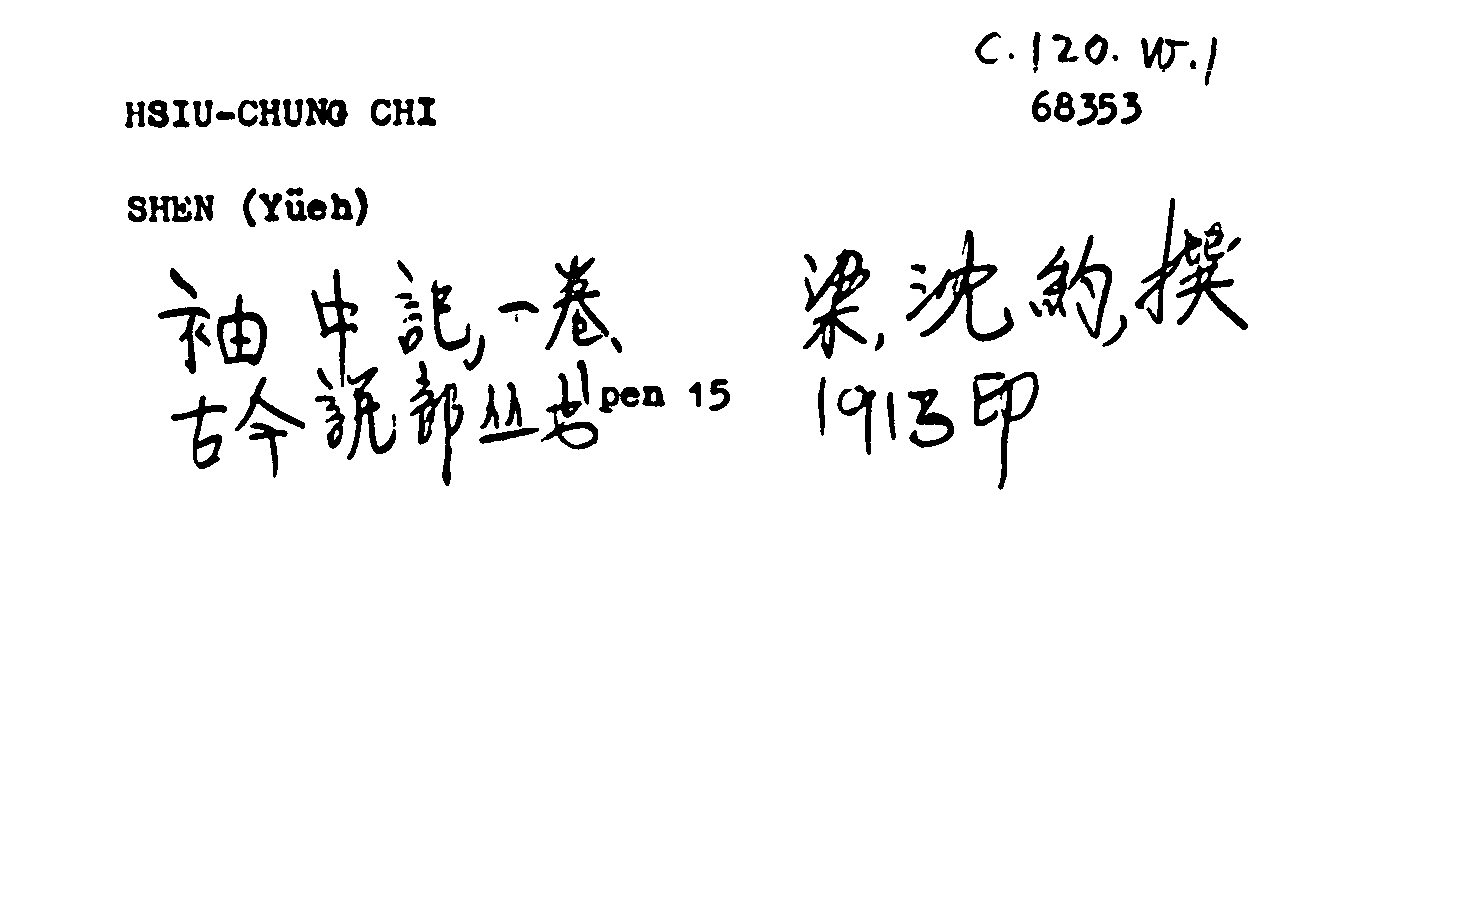 C.120.W.1
HSIU-CHUNG CHI
68353
SHEN (Yüeh)
袖中記,一卷、 梁,沈約,撰
古今説部丛书 pen 15 1913印